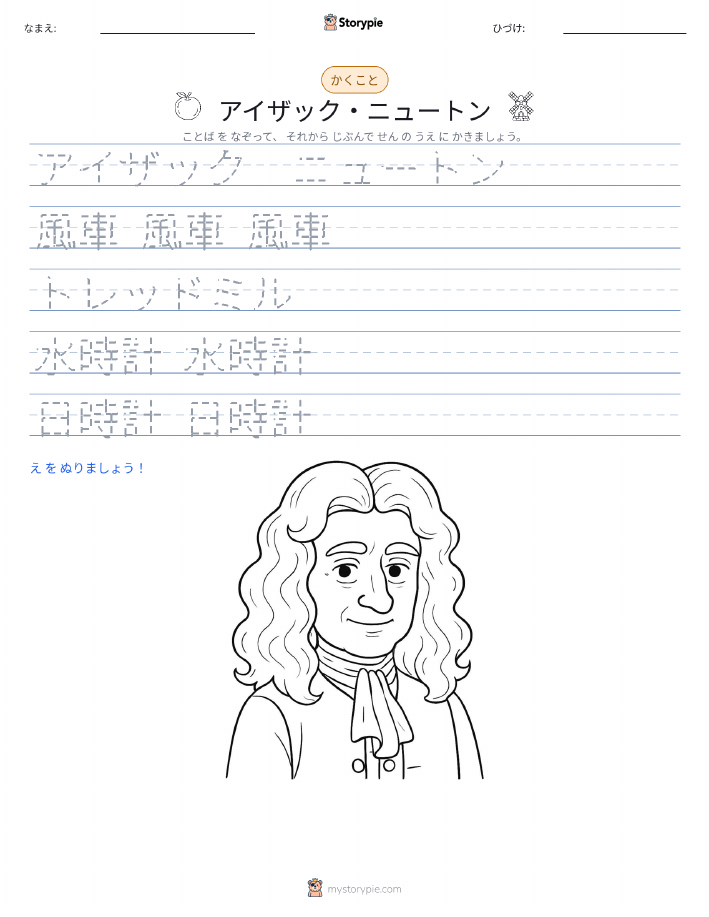 なまえ:
Storypie
ひづけ:
かくこと
アイザック・ニュートン
ことば を なぞって、 それから じぶんで せん の うえ に かきましょう。
アイザック ニュートン
風車 風車 風車
トレッドミル
水時計 水時計
日時計 日時計
え を ぬりましょう！
mystorypie.com